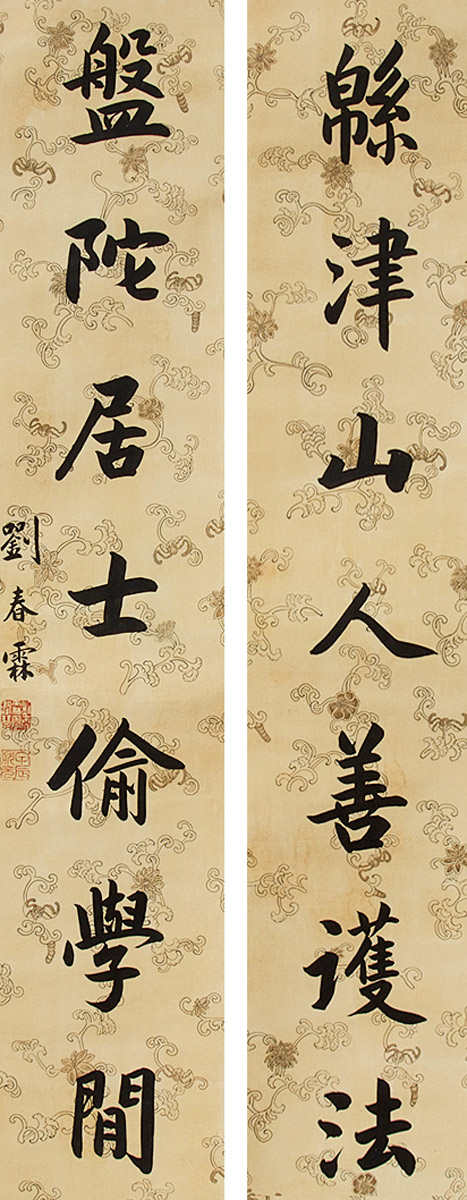 緜津山人善護法
盤陀居士偷學閒
劉春霖